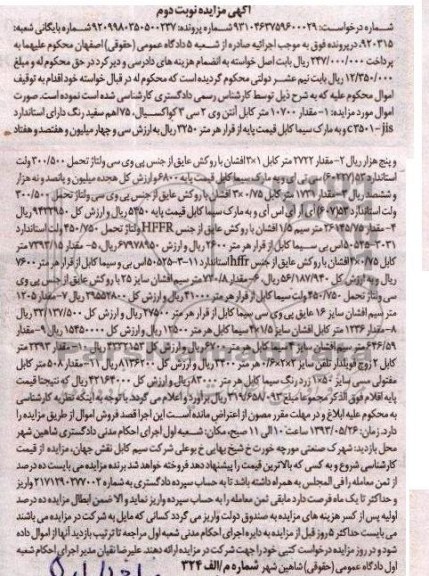 آگهی مزایده نوبت دوم
شماره درخواست: ۹۳۱۰۴۶۳۷۵۹۶۰۰۰۲۹ شماره پرونده: ۹۲۰۹۹۸۰۳۵۰۵۰۰۲۳۷ شماره بایگانی شعبه:
۹۲۰۳۱۵. در پرونده فوق به موجب اجرائیه صادره از شعبه ۵ دادگاه عمومی (حقوقی) اصفهان محکوم علیهما به
پرداخت ۲۴۷/۰۰۰/۰۰۰ ریال بابت اصل خواسته به انضمام هزینه های دادرسی و دیرکرد در حق محکوم له و مبلغ
۱۲/۳۵۰/۰۰۰ ریال بابت نیم عشر دولتی محکوم گردیده است که محکوم له در قبال خواسته خود اقدام به توقیف
اموال محکوم علیه که به شرح ذیل توسط کارشناس رسمی دادگستری کارشناسی شده است نموده است. صورت
اموال مورد مزایده: ۱- مقدار ۱۰۷۰۰ متر کابل آنتن وی ۳ سی ۳ کواکسیال، ۷۵ اهم سفید رنگ دارای استاندارد
jis-C۳۵۰۱ و به مارک سیما کابل قیمت پایه از قرار هر متر ۳۲۵۰ ریال به ارزش سی و چهار میلیون و هفتصد و هفتاد
و پنج هزار ریال ۲- مقدار ۲۷۲۲ متر کابل ۱×۳ افشان با روکش عایق از جنس پی وی سی ولتاژ تحمل ۳۰۰/۵۰۰ ولت
استاندارد ۵۳(۶۰۲۲۷) سی تی آی و به مارک سیما کابل قیمت پایه ۶۸۰۰ و ارزش کل هجده میلیون و پانصد و نه هزار
و ششصد ریال ۳- مقدار ۱۷۳۱ متر کابل ۰/۷۵×۳ افشان با روکش عایق از جنس پی وی سی ولتاژ تحمل ۳۰۰/۵۰۰
ولت استاندارد ۵۳(۶۰۷) آی آر آی اس آی و به مارک سیما کابل قیمت پایه ۵۴۵۰ ریال و ارزش کل ۹۴۳۳۹۵۰ ریال
۴- مقدار ۲۶۱۴۵/۷۵ متر سیم ۱/۵ افشان با روکش عایق از جنس HFFR ولتاژ تحمل ۴۵۰/۷۵۰ ولت استاندارد
۵۰۵۲۵-۳۰۳۱ اس بی سیما کابل از قرار هر متر ۲۶۰۰ ریال و ارزش ۶۷۹۷۸۹۵۰ ریال ۵- مقدار ۷۳۹۳/۱۵ متر
کابل ۰/۷۵×۴ افشان با روکش عایق از جنس hffr استاندارد ۱۱-۳-۵۰۵۲۵ اس بی و سیما کابل از قرار هر متر ۷۶۰۰
ریال و به ارزش کل ۵۶/۱۸۷/۹۴۰ ریال ۶- مقدار ۷۳۰/۸ متر سیم افشان سایز ۲۵ با روکش عایق از جنس پی وی
سی ولتاژ تحمل ۴۵۰/۷۵۰ ولت سیما کابل از قرار هر متر ۴۱۰۰۰ ریال و ارزش کل ۲۹۵۵۲۸۰۰ ریال ۷- مقدار ۱۲۰۵
متر سیم افشان سایز ۱۶ عایق پی وی سی سیما کابل از قرار هر متر ۲۷۵۰۰ ریال و ارزش کل ۳۳/۱۳۷/۵۰۰ ریال
۸- مقدار ۱۲۳۶ متر کابل افشان سایز ۱/۵×۴ سیما کابل هر متر ۱۲۵۰۰ ریال و ارزش کل ۱۵۴۵۰۰۰۰ ریال ۹- مقدار
۶۴۶/۵۹ متر سیم افشان سایز ۴ سیما کابل هر متر ۶۷۰۰ ریال و ارزش کل ۴۳۳۲۱۵۳ ریال ۱۰- مقدار ۲۳۹۳ متر
کابل ۲ زوج فویلدار تلفن سایز ۰/۶×۲×۲ هر متر ۳۴۰۰ ریال و ارزش کل ۸۱۳۶۲۰۰ ریال ۱۱- مقدار ۵۰۸ متر کابل
مفتولی مسی سایز ۵۰×۱ زرد رنگ سیما کابل هر متر ۸۳۰۰۰ ریال و ارزش کل ۴۲۱۶۴۰۰۰ ریال که نتیجتا قیمت
پایه اقلام فوق الذکر مجموعا مبلغ ۳۱۹/۶۵۸/۰۹۳ ریال برآورد و اعلام می گردد. با توجه به اینکه نظریه کارشناسی
به محکوم علیه ابلاغ و در مهلت مقرر مصون از اعتراض مانده است این اجرا قصد فروش اموال از طریق مزایده را
دارد. زمان: ۱۳۹۳/۰۵/۲۶ ساعت ۱۰ الی ۱۱ صبح، مکان: شعبه اول اجرای احکام مدنی دادگستری شاهین شهر
محل بازدید: شهرک صنعتی مورچه خورت خ شیخ بهایی خ بوعلی شرکت سیم کابل نقش جهان، مزایده از قیمت
کارشناسی شروع و به کسی که بالاترین قیمت را پیشنهاد دهد فروخته خواهد شد برنده مزایده می بایست ده درصد
از ثمن معامله را فی المجلس به همراه داشته باشد تا به حساب سپرده دادگستری به شماره ۲۱۷۱۲۹۰۲۷۷۰۰۲ واریز
و حداکثر تا یک ماه فرصت دارد مابقی ثمن معامله را به حساب سپرده واریز نماید و الا ضمن ابطال مزایده ده درصد
اولیه پس از کسر هزینه های مزایده به صندوق دولت واریز می گردد کسانی که مایل به شرکت در مزایده می باشند
می بایست حداکثر ۵ روز قبل از مزایده به دایره اجرای احکام مدنی شعبه اول مراجعه تا ترتیب بازدید آنها از اموال داده
شود و در روز مزایده درخواست کتبی خود را جهت شرکت در مزایده ارائه دهند. علیرضا نقیان مدیر اجرای احکام شعبه
اول دادگاه عمومی (حقوقی) شاهین شهر شماره م/الف ۳۲۴